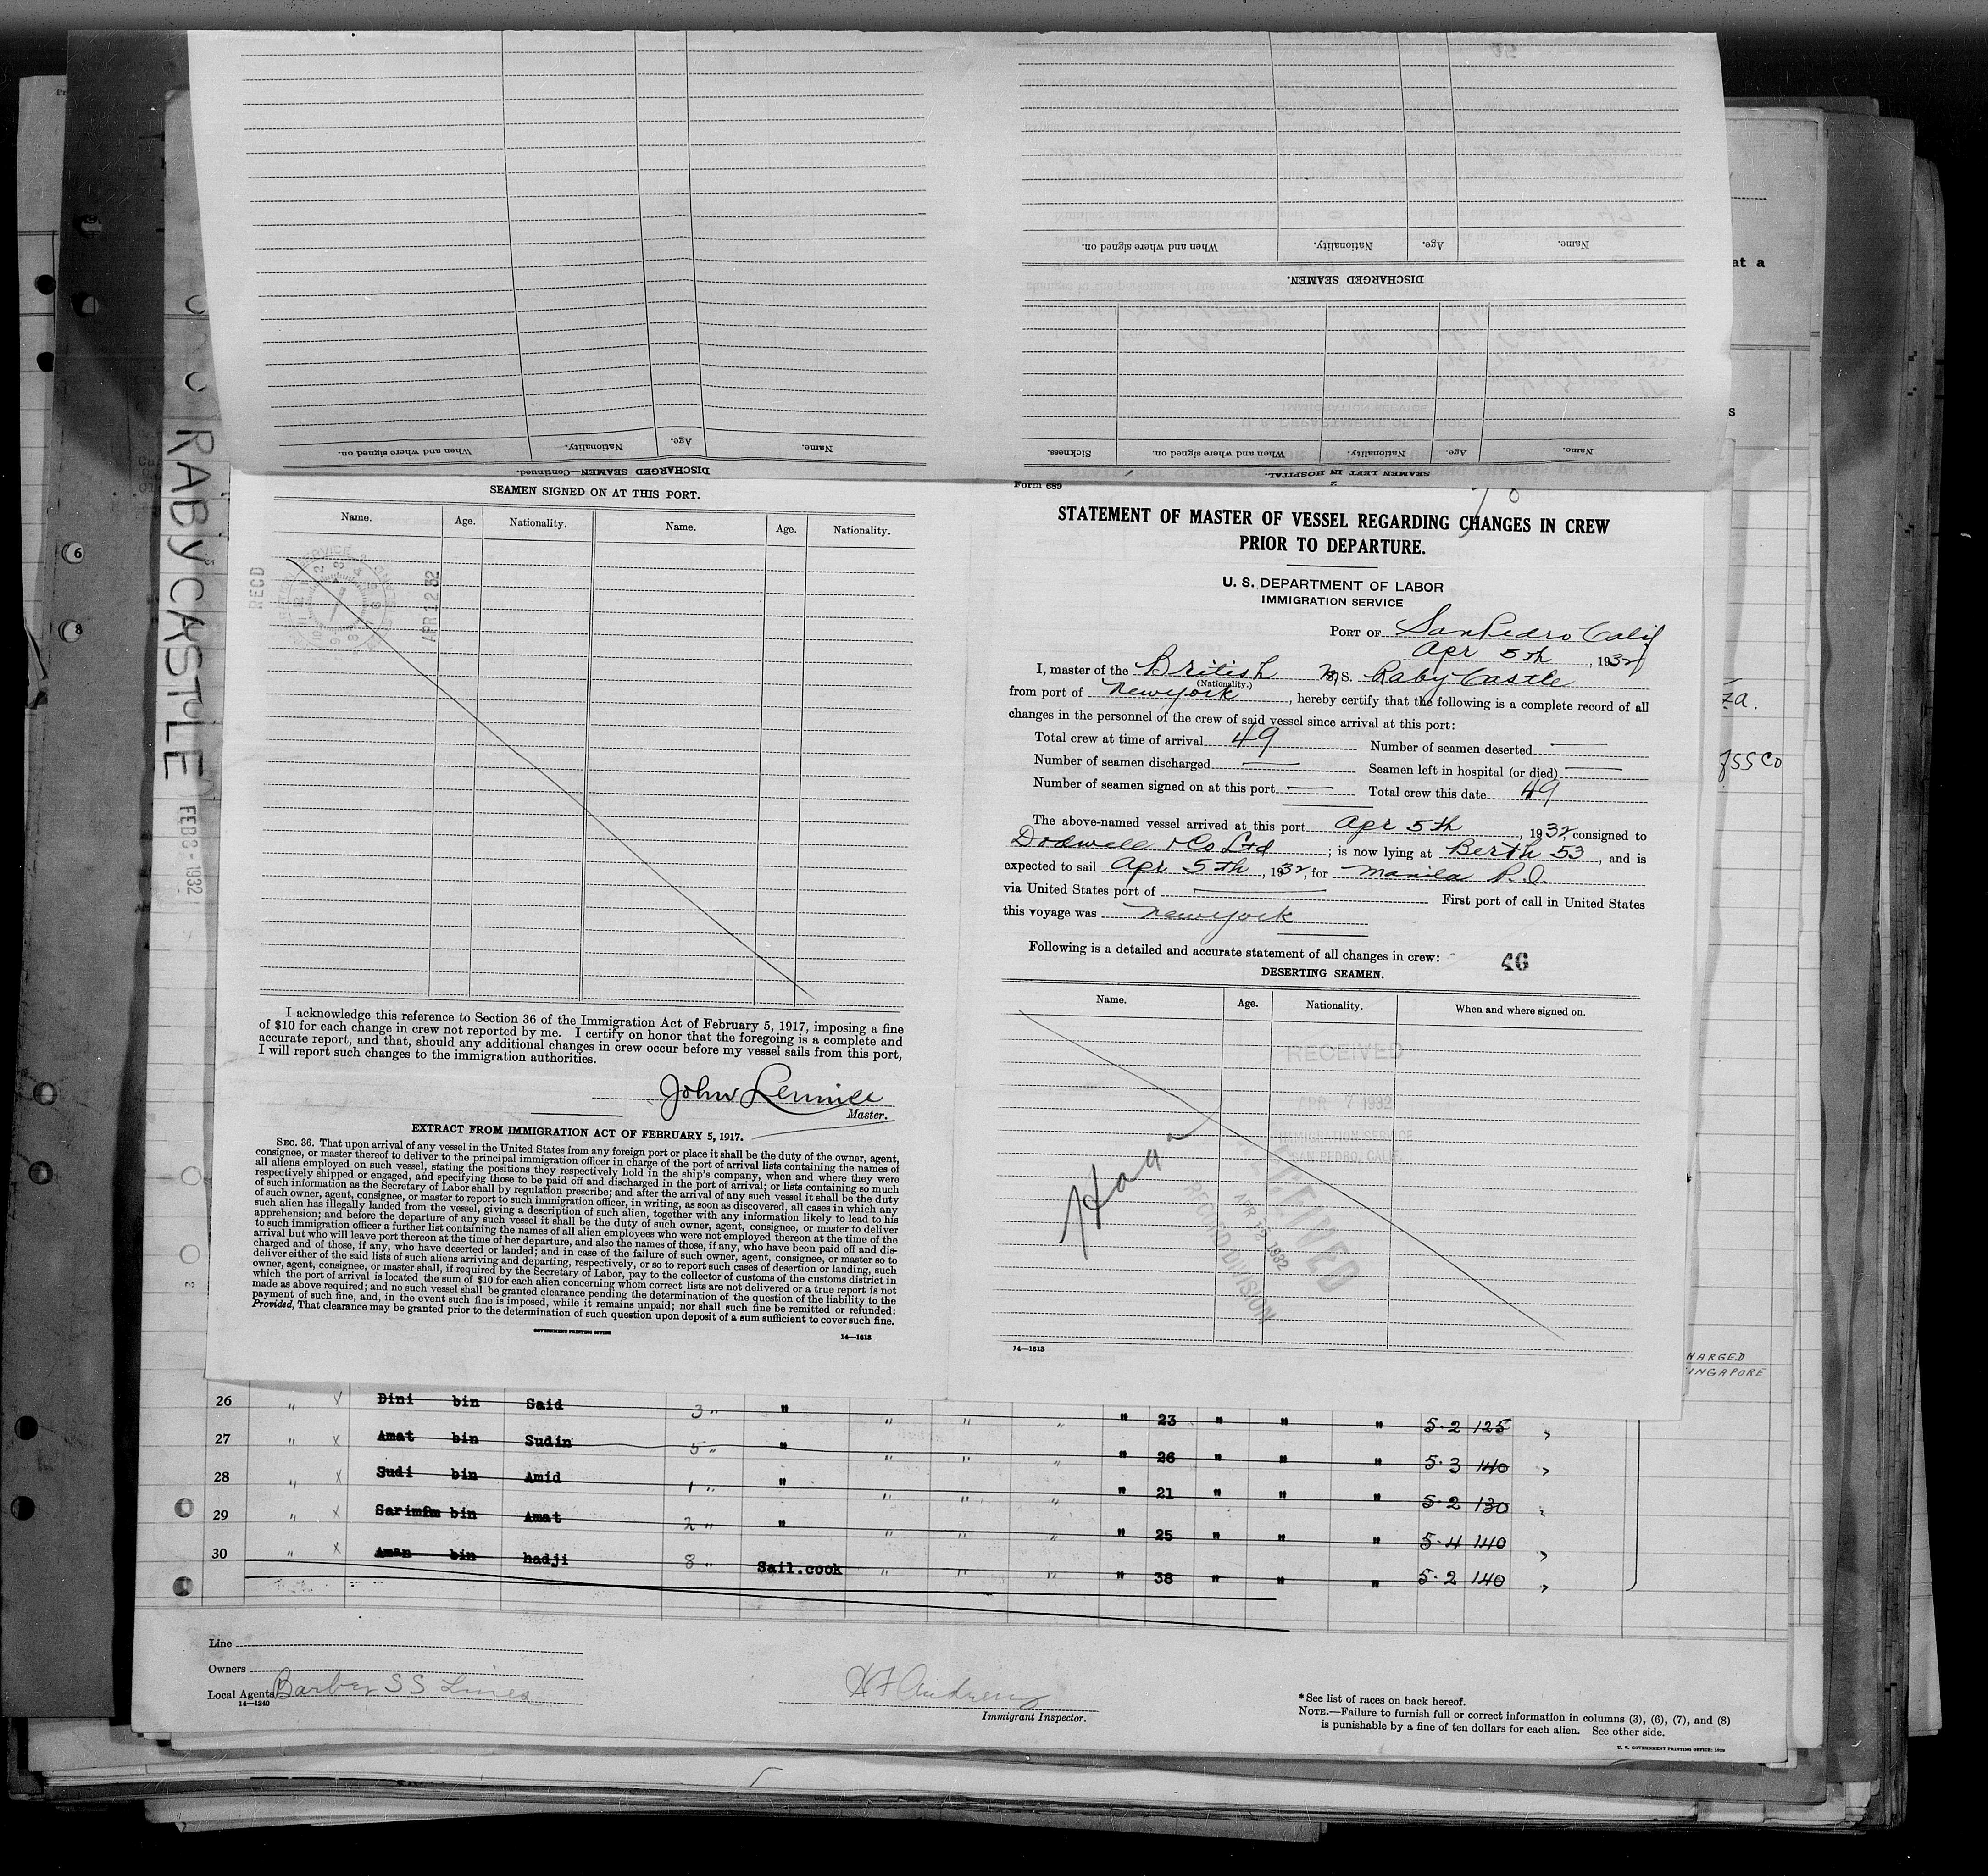 RABY CASTLE
FEB 3 - 1932
Name. Age. Nationality. When and where signed on.
DISCHARGED SEAMEN—Continued.
Name. Age. Nationality. When and where signed on.
DISCHARGED SEAMEN.
Name. Age. Nationality. When and where signed on. Sickness.
SEAMEN LEFT IN HOSPITAL.
2
SEAMEN SIGNED ON AT THIS PORT.
Name. Age. Nationality. Name. Age. Nationality.
RECD
APR 12 32
I acknowledge this reference to Section 36 of the Immigration Act of February 5, 1917, imposing a fine
of $10 for each change in crew not reported by me. I certify on honor that the foregoing is a complete and
accurate report, and that, should any additional changes in crew occur before my vessel sails from this port,
I will report such changes to the immigration authorities.
John
Master.
EXTRACT FROM IMMIGRATION ACT OF FEBRUARY 5, 1917.
SEC. 36. That upon arrival of any vessel in the United States from any foreign port or place it shall be the duty of the owner, agent,
consignee, or master thereof to deliver to the principal immigration officer in charge of the port of arrival lists containing the names of
all aliens employed on such vessel, stating the positions they respectively hold in the ship's company, when and where they were
respectively shipped or engaged, and specifying those to be paid off and discharged in the port of arrival; or lists containing so much
of such information as the Secretary of Labor shall by regulation prescribe; and after the arrival of any such vessel it shall be the duty
of such owner, agent, consignee, or master to report to such immigration officer, in writing, as soon as discovered, all cases in which any
such alien has illegally landed from the vessel, giving a description of such alien, together with any information likely to lead to his
apprehension; and before the departure of any such vessel it shall be the duty of such owner, agent, consignee, or master to deliver
to such immigration officer a further list containing the names of all alien employees who were not employed thereon at the time of the
arrival but who will leave port thereon at the time of her departure, and also the names of those, if any, who have been paid off and dis-
charged and of those, if any, who have deserted or landed; and in case of the failure of such owner, agent, consignee, or master so to
deliver either of the said lists of such aliens arriving and departing, respectively, or so to report such cases of desertion or landing, such
owner, agent, consignee, or master shall, if required by the Secretary of Labor, pay to the collector of customs of the customs district in
which the port of arrival is located the sum of $10 for each alien concerning whom correct lists are not delivered or a true report is not
made as above required; and no such vessel shall be granted clearance pending the determination of the question of the liability to the
payment of such fine, and, in the event such fine is imposed, while it remains unpaid; nor shall such fine be remitted or refunded:
Provided, That clearance may be granted prior to the determination of such question upon deposit of a sum sufficient to cover such fine.
GOVERNMENT PRINTING OFFICE
14—1613
Form 689
STATEMENT OF MASTER OF VESSEL REGARDING CHANGES IN CREW
PRIOR TO DEPARTURE.
U. S. DEPARTMENT OF LABOR
IMMIGRATION SERVICE
PORT OF San Pedro Calif
Apr 5th, 1932
I, master of the British M.S. Raby Castle
(Nationality.)
from port of New York, hereby certify that the following is a complete record of all
changes in the personnel of the crew of said vessel since arrival at this port:
Total crew at time of arrival 49 Number of seamen deserted —
Number of seamen discharged — Seamen left in hospital (or died) —
Number of seamen signed on at this port — Total crew this date 49
The above-named vessel arrived at this port Apr 5th, 1932, consigned to
Dodwell & Co Ltd; is now lying at Berth 53, and is
expected to sail Apr 5th, 1932, for Manila P.I.
via United States port of — First port of call in United States
this voyage was New York
Following is a detailed and accurate statement of all changes in crew:
46
DESERTING SEAMEN.
Name. Age. Nationality. When and where signed on.
RECEIVED
APR 7 1932
IMMIGRATION SERVICE
SAN PEDRO, CALIF.
RECEIVED
APR 12 1932
RECORD DIVISION
14—1613
at a
SS Co
HARGED
INGAPORE
26 " X Dini bin Said 3 " " " " " " 23 " " " 5.2 125 "
27 " X Amat bin Sudin 5 " " " " " " 26 " " " 5.3 140 "
28 " X Sudi bin Amid 1 " " " " " " 21 " " " 5.2 130 "
29 " X bin Amat 2 " " " " " " 25 " " " 5.4 140 "
30 " X Aman bin hadji 8 " Sail.cook " " " " 38 " " " 5.2 140 "
Line
Owners
Local Agents Barber SS Lines
14—1240
Immigrant Inspector.
* See list of races on back hereof.
NOTE.—Failure to furnish full or correct information in columns (3), (6), (7), and (8)
is punishable by a fine of ten dollars for each alien. See other side.